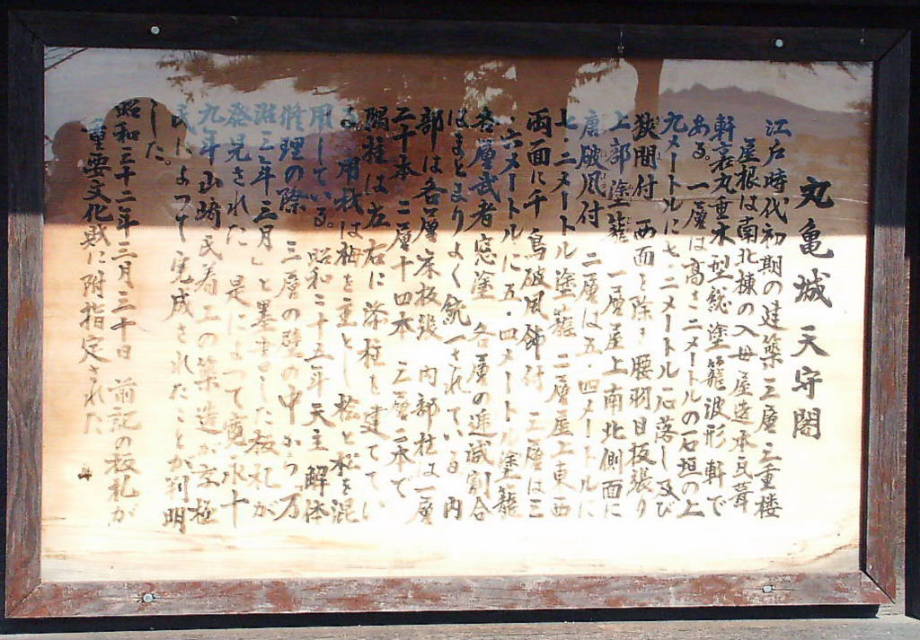 丸亀城天守閣
江戸時代初期の建築 三層三重楼
屋根は南北棟の入母屋造本瓦葺
軒裏丸垂木型総塗籠波形軒で
ある。一層は高さ二メートルの石垣の上
九メートルに七・二メートル石落し及び
狭間付 西面を除き腰羽目板張り
上部塗籠 一層屋上南北側面に
唐破風付 二層は五・四メートルに
七・二メートル塗籠 二層屋上東西
両面に千鳥破風飾付 三層は三
・六メートルに五・四メートル塗籠
各層武者窓塗 各層の逓減割合
はまとまりよく統一されている 内
部は各層床板張 内部柱は一層
二十本 二層十四本 三層二本で
隅柱は左右に添柱を建ててい
る 用材は栂を主とし 松と木を混
用している。昭和二十五年 天主解体
修理の際 三層の壁の中から「万
治三年三月」と墨書した板札が
発見された 是によって寛永十
九年 山崎氏着工の築造が京極
氏によって完成されたことが判明
した。
昭和三十二年三月三十日 前記の板札が
重要文化財に附指定された